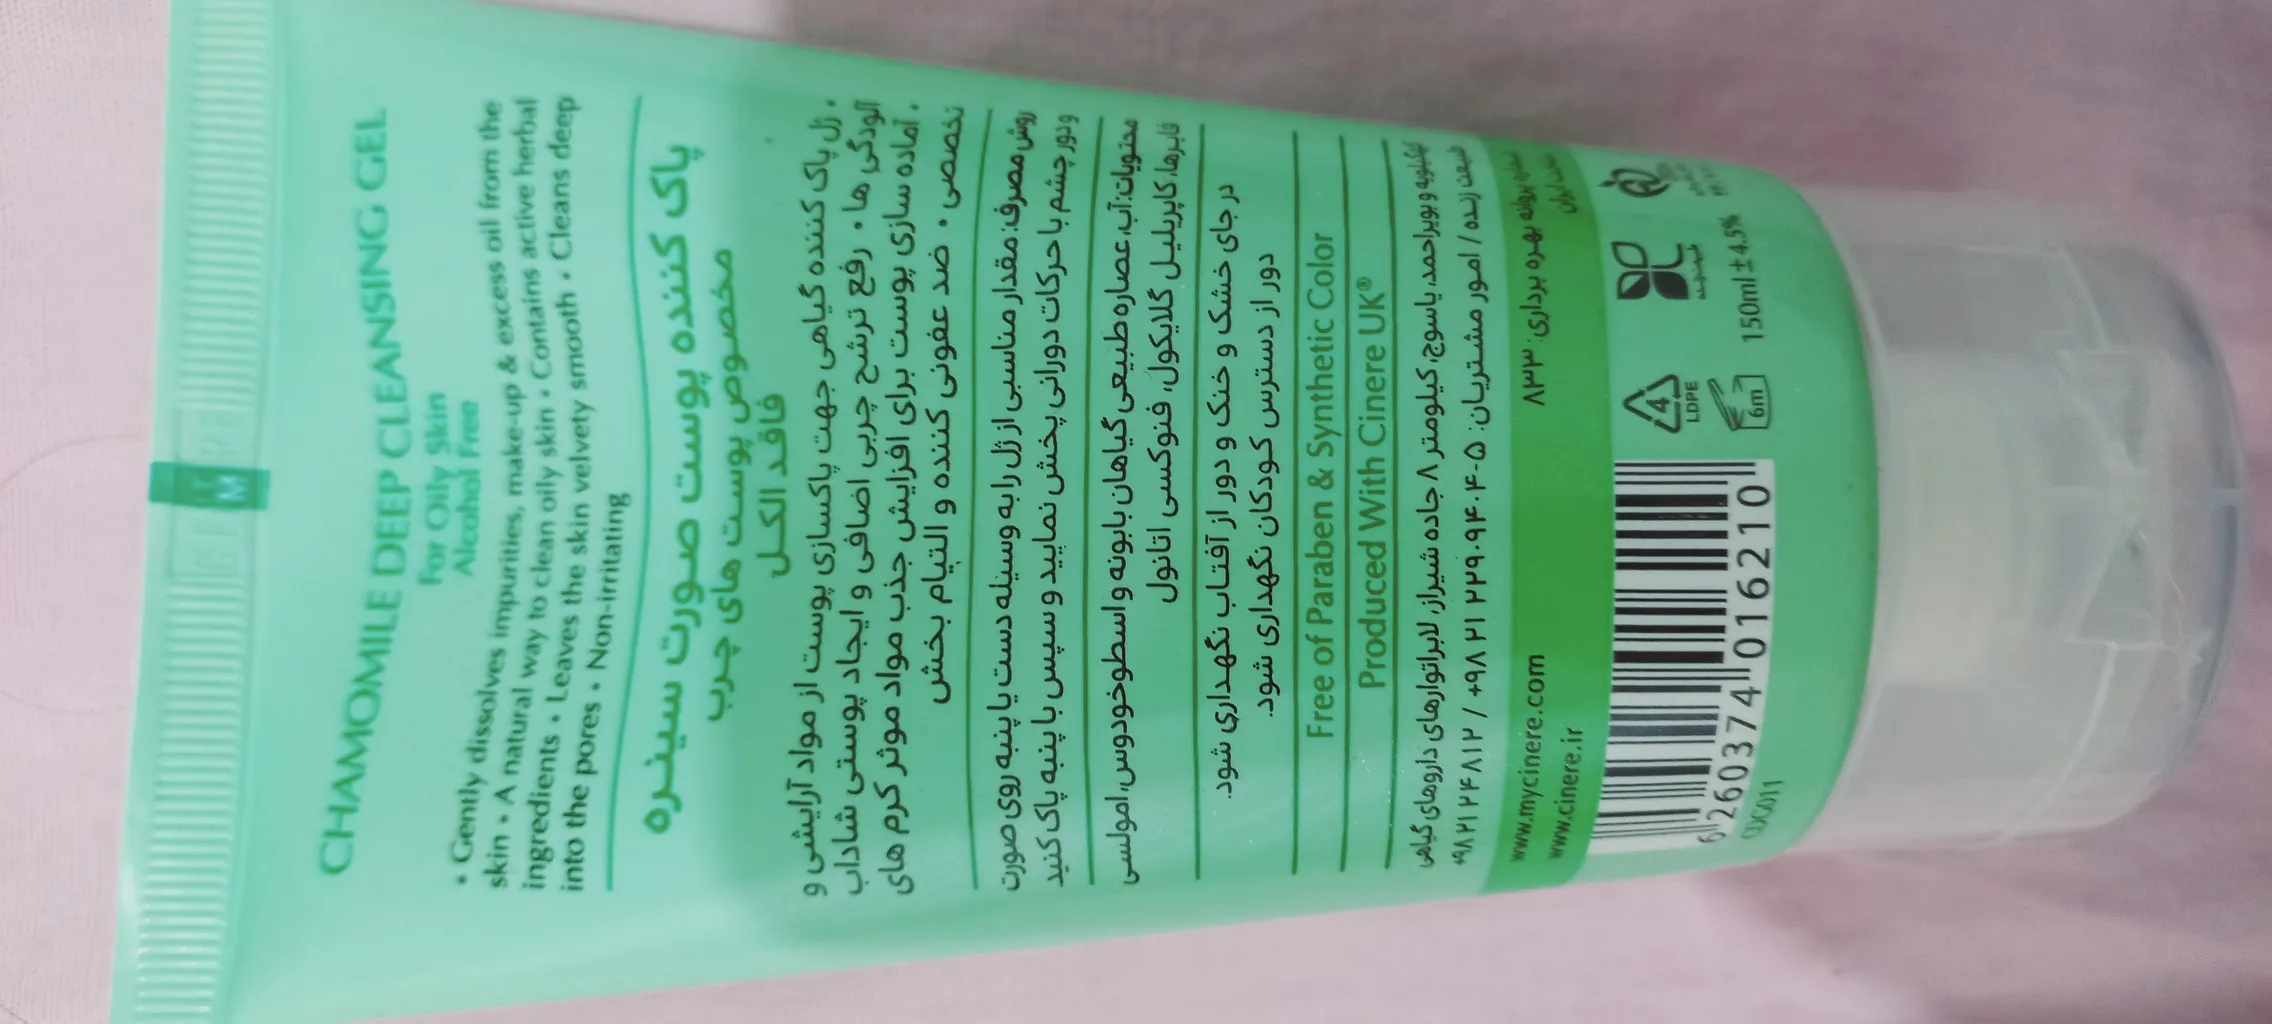 CHAMOMILE DEEP CLEANSING GEL
For Oily Skin
Alcohol Free
• Gently dissolves impurities, make-up & excess oil from the
skin • A natural way to clean oily skin • Contains active herbal
ingredients • Leaves the skin velvety smooth • Cleans deep
into the pores • Non-irritating
پاک کننده پوست صورت سینره
مخصوص پوست های چرب
فاقد الکل
• ژل پاک کننده گیاهی جهت پاکسازی پوست از مواد آرایشی و
آلودگی ها • رفع ترشح چربی اضافی و ایجاد پوستی شاداب
• آماده سازی پوست برای افزایش جذب مواد موثر کرم های
تخصصی • ضد عفونی کننده و التیام بخش
روش مصرف: مقدار مناسبی از ژل را به وسیله دست یا پنبه روی صورت
و دور چشم با حرکات دورانی پخش نمایید و سپس با پنبه پاک کنید
محتویات: آب، عصاره طبیعی گیاهان بابونه و اسطوخودوس، امولسی
فایرها، کاپریلیل گلایکول، فنوکسی اتانول
در جای خشک و خنک و دور از آفتاب نگهداری شود.
دور از دسترس کودکان نگهداری شود.
Free of Paraben & Synthetic Color
Produced With Cinere UK®
کهگیلویه و بویراحمد، یاسوج، کیلومتر ۸ جاده شیراز، لابراتوارهای داروهای گیاهی
طبیعت زنده / امور مشتریان: ۵-۲۲۹۰۹۴۰۴ ۲۱ ۹۸+ / ۲۲۴۸۱۲ ۲۱ ۹۸+
www.mycinere.com
پروانه بهره برداری: ۸۳۳
www.cinere.ir
ساخت ایران
4
LDPE
6m
150ml ± 4.5%
6 260374 016210
CDG011